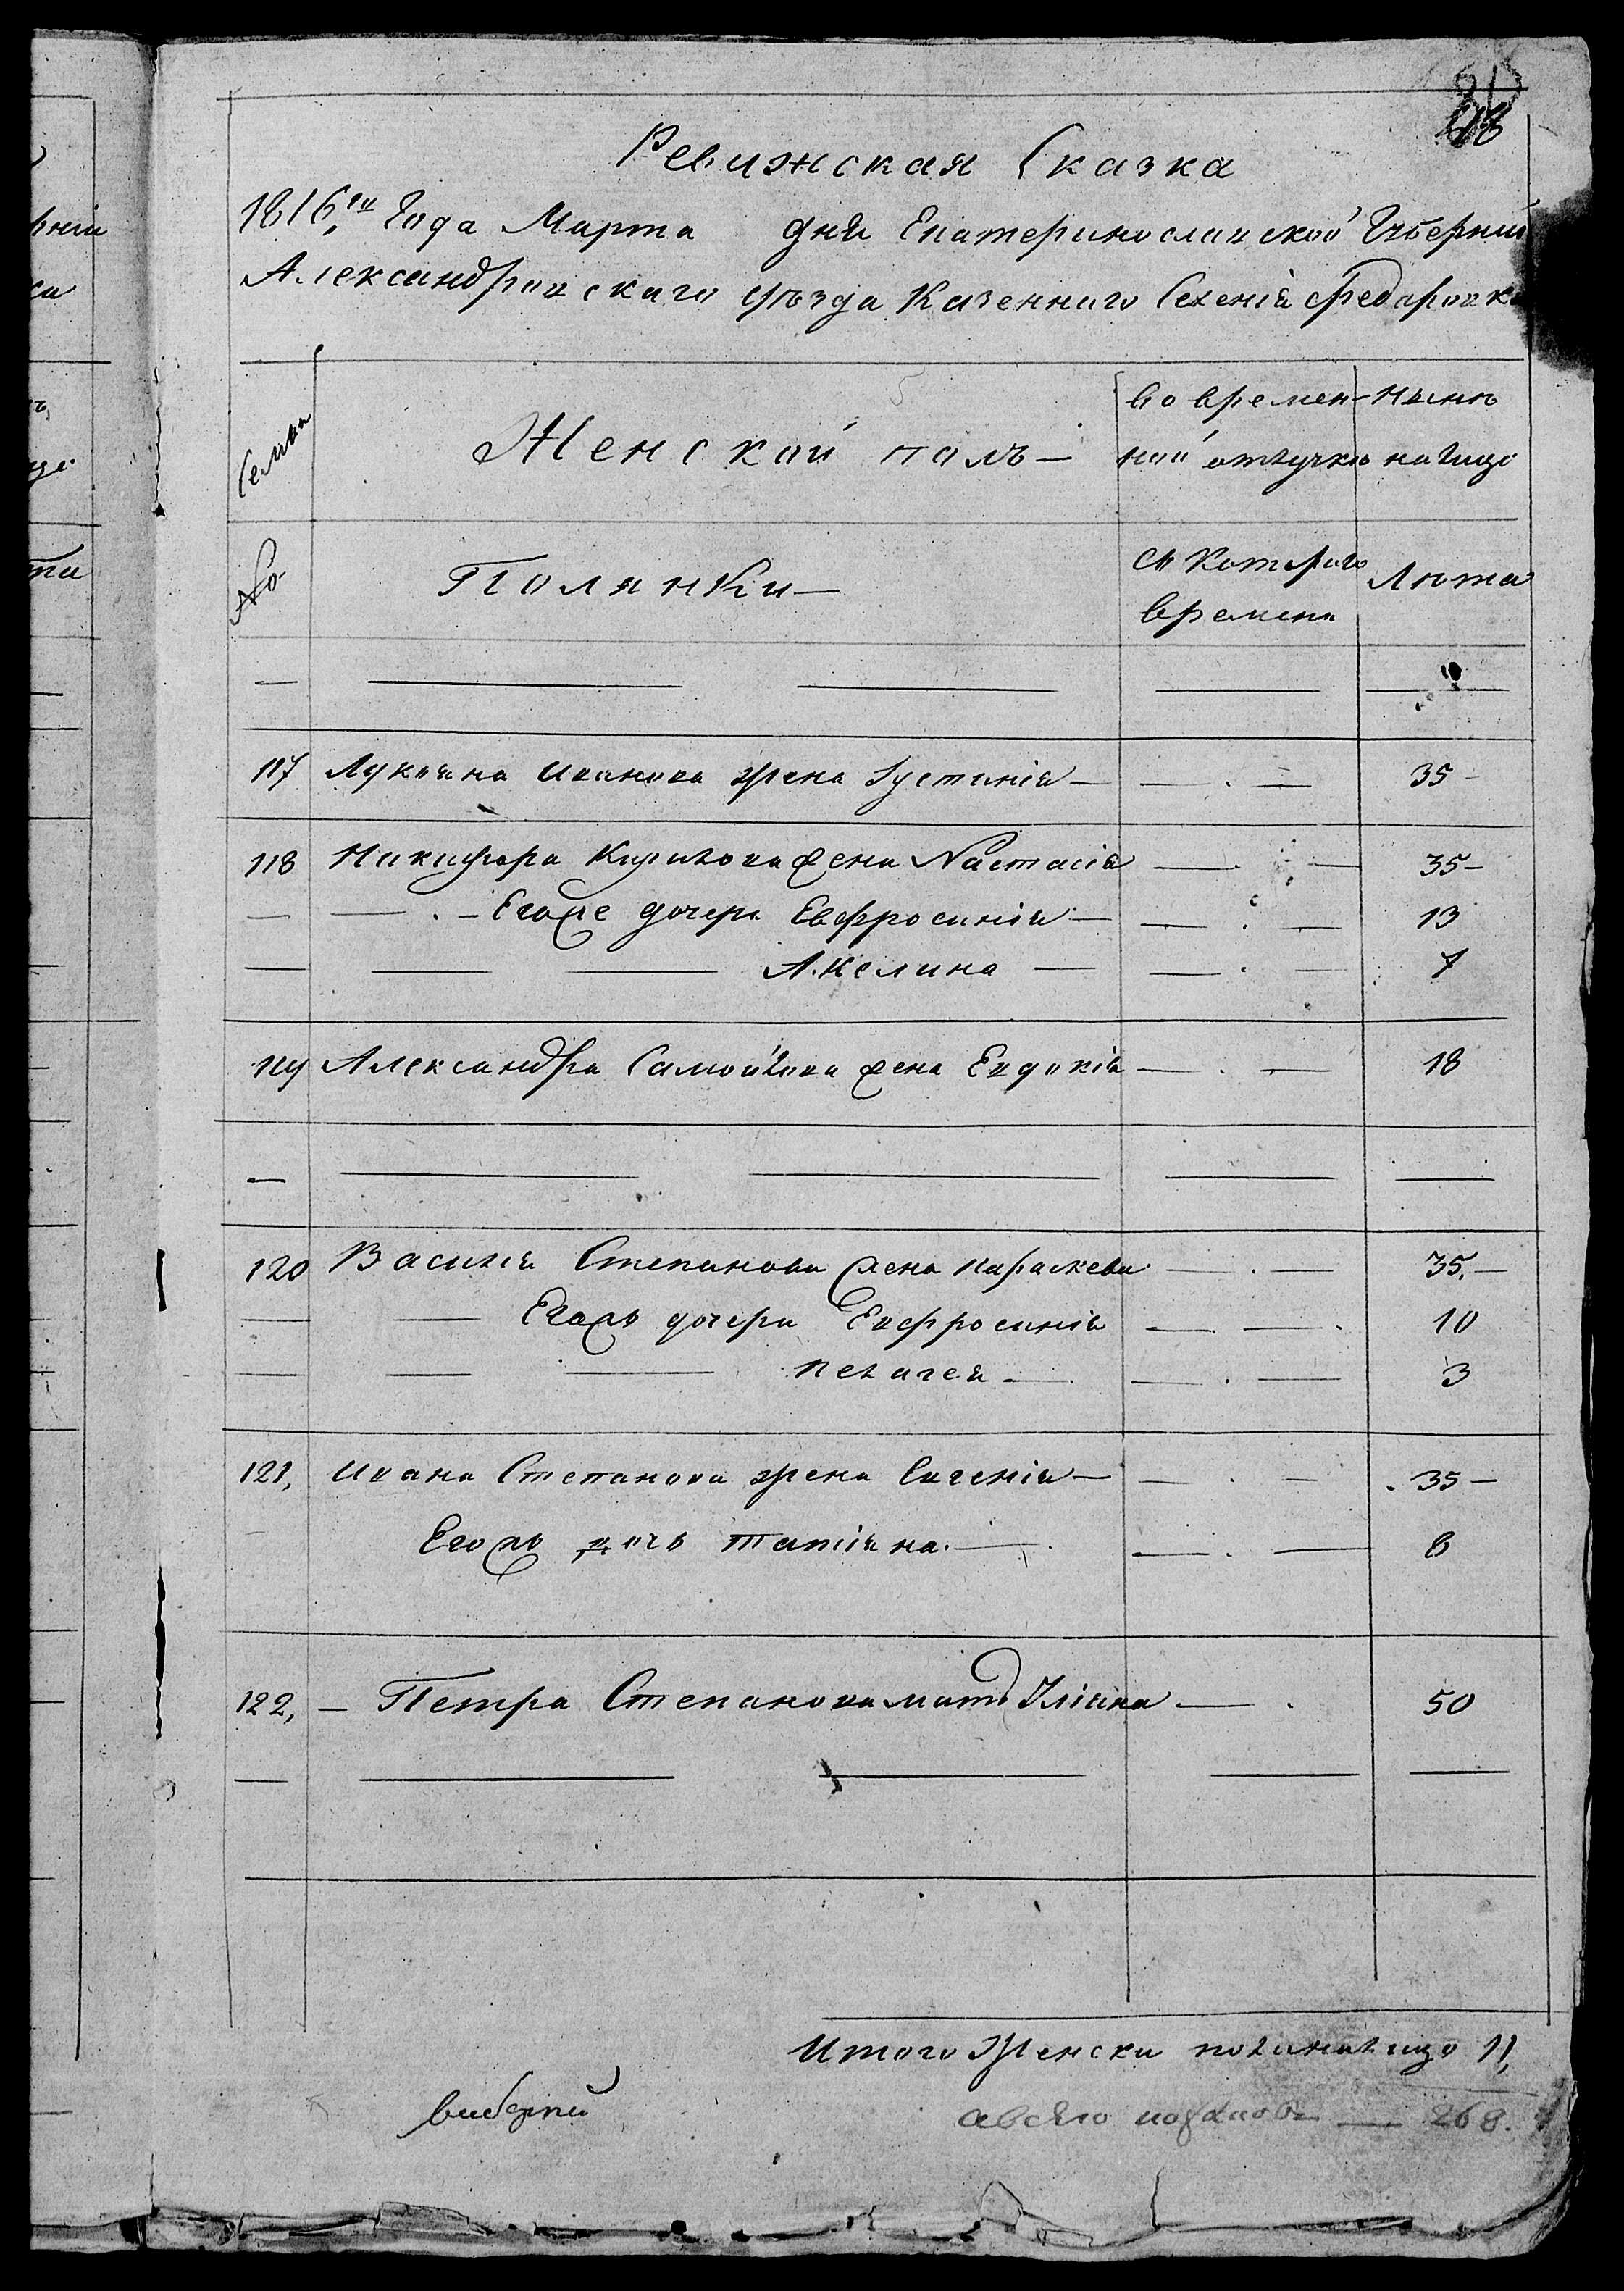 Ревижская Сказка
1816го Года Марта дня Екатеринославской Губернии
Александровскаго уѣзда Казеннаго Селенія Федоровк
Семьи Женской полъ — во времен- Нынѣ
ной отлучкѣ на лицо
No Полянки — съ Котораго Лѣта
времени
117 Лукяна Иванова жена Iустинія — 35 —
118 Никифора Кирилова жена Настасія — 35 —
Егоже дочери Евфросинія — 13
Акелина — 7
119 Александра Самойлова жена Евдокія — 18
120 Василія Степанова жена Параскева — 35. —
Егожъ дочери Евфросинія — 10
Пелагея — 3
121, Ивана Степанова жена Евгенія — 35 —
Егожъ дочь Татіяна. — 8
122, — Петра Степанова мать Уліяна — 50
Итого Женска пола налицо 11,
авсего 268.